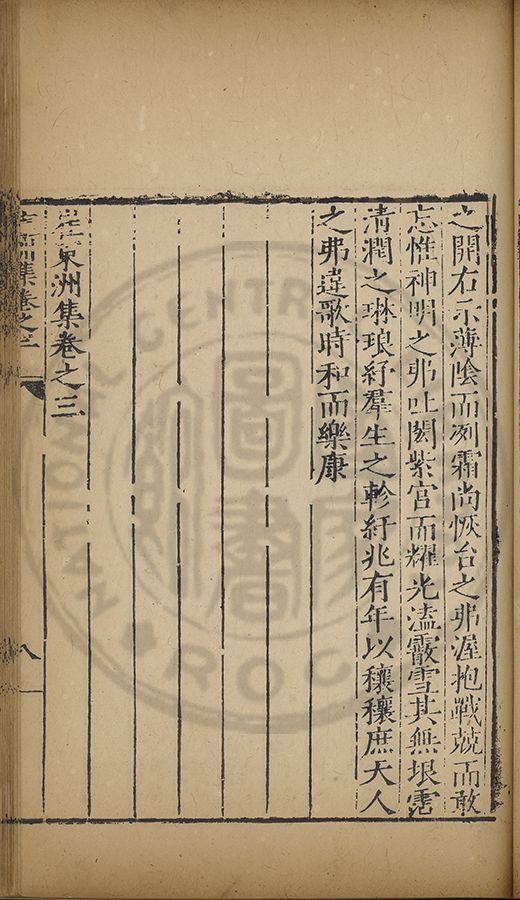 之開右示薄陰而冽霜尚恢台之弗渥抱戰兢而敢
忘惟神明之弗吐閟紫宮而耀光溘霰雪其無垠霑
清潤之琳琅紓羣生之軫紆兆有年以穰穰庶天人
之弗違歌時和而樂康
東洲集卷之三
洲集卷之三
八